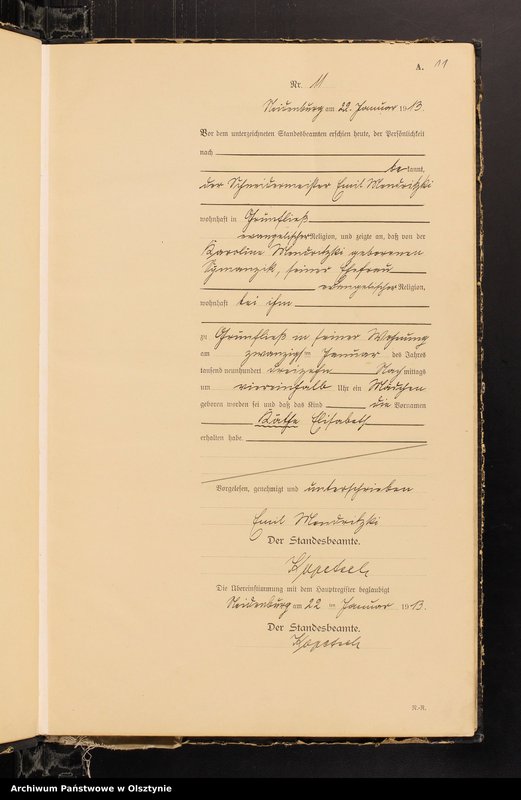 A. 11
Nr. 11
Neidenburg am 22. Januar 1913.
Vor dem unterzeichneten Standesbeamten erschien heute, der Persönlichkeit
nach
bekannt,
der Schneidermeister Emil Mondritzki
wohnhaft in Grünfließ
evangelischer Religion, und zeigte an, daß von der
Karoline Mondritzki geborenen
seiner Ehefrau
evangelischer Religion,
wohnhaft bei ihm
zu Grünfließ in seiner Wohnung
am zwanzigsten Januar des Jahres
tausend neunhundert dreizehn Nachmittags
um viereinhalb Uhr ein Mädchen
geboren worden sei und daß das Kind die Vornamen
Käthe Elisabeth
erhalten habe.
Vorgelesen, genehmigt und unterschrieben
Emil Mondritzki
Der Standesbeamte.
Kopetsch
Die Übereinstimmung mit dem Hauptregister beglaubigt
Neidenburg am 22 ten Januar 1913.
Der Standesbeamte.
Kopetsch
N.-R.
Archiwum Państwowe w Olsztynie